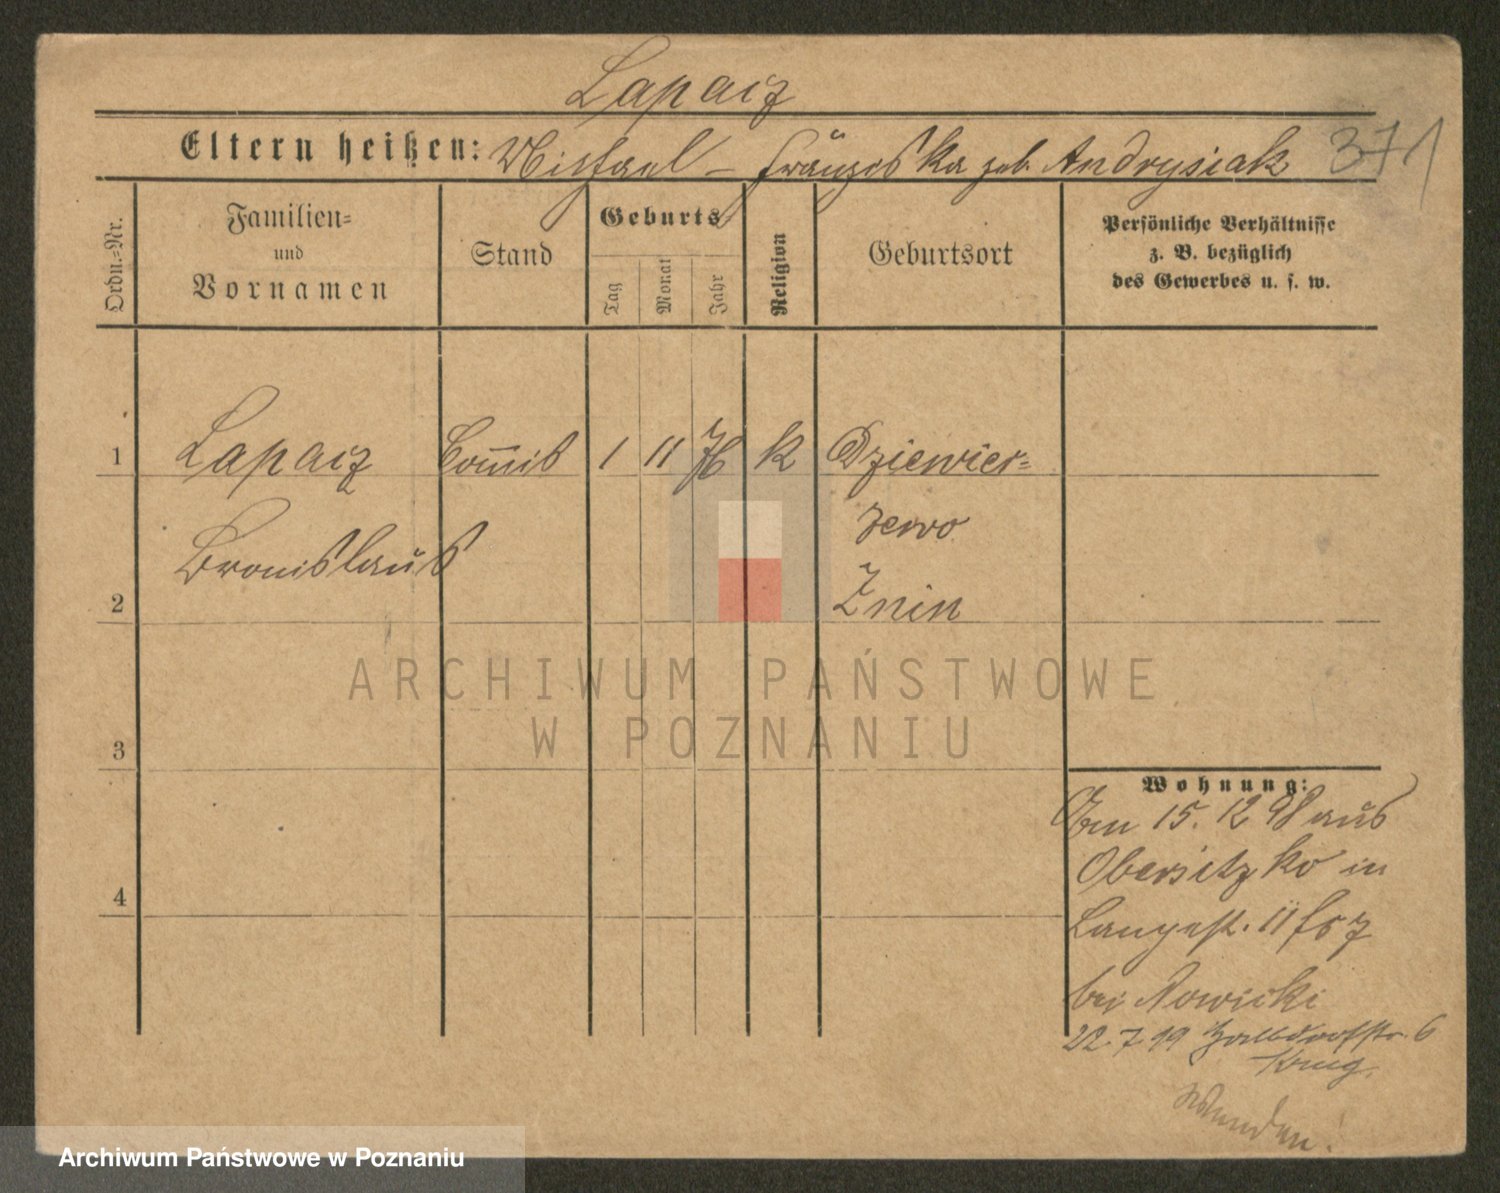 Lapaiz
Eltern heißen: Michael – Franziska geb. Andrysiak 371
Ordn.-Nr.
Familien-
und
Vornamen
Stand
Geburts
Tag
Monat
Jahr
Religion
Geburtsort
Persönliche Verhältnisse
z. B. bezüglich
des Gewerbes u. s. w.
1 Lapaiz Commis 1 11 76 K Dziewier-
zewo
Bronislaus
2 Znin
3
4
Wohnung:
Am 15. 12 98 aus
Obersitzko in
Langestr. 11
bei Nowicki
22. 7 99 6
Krug.
Wenden!
ARCHIWUM PAŃSTWOWE
W POZNANIU
Archiwum Państwowe w Poznaniu